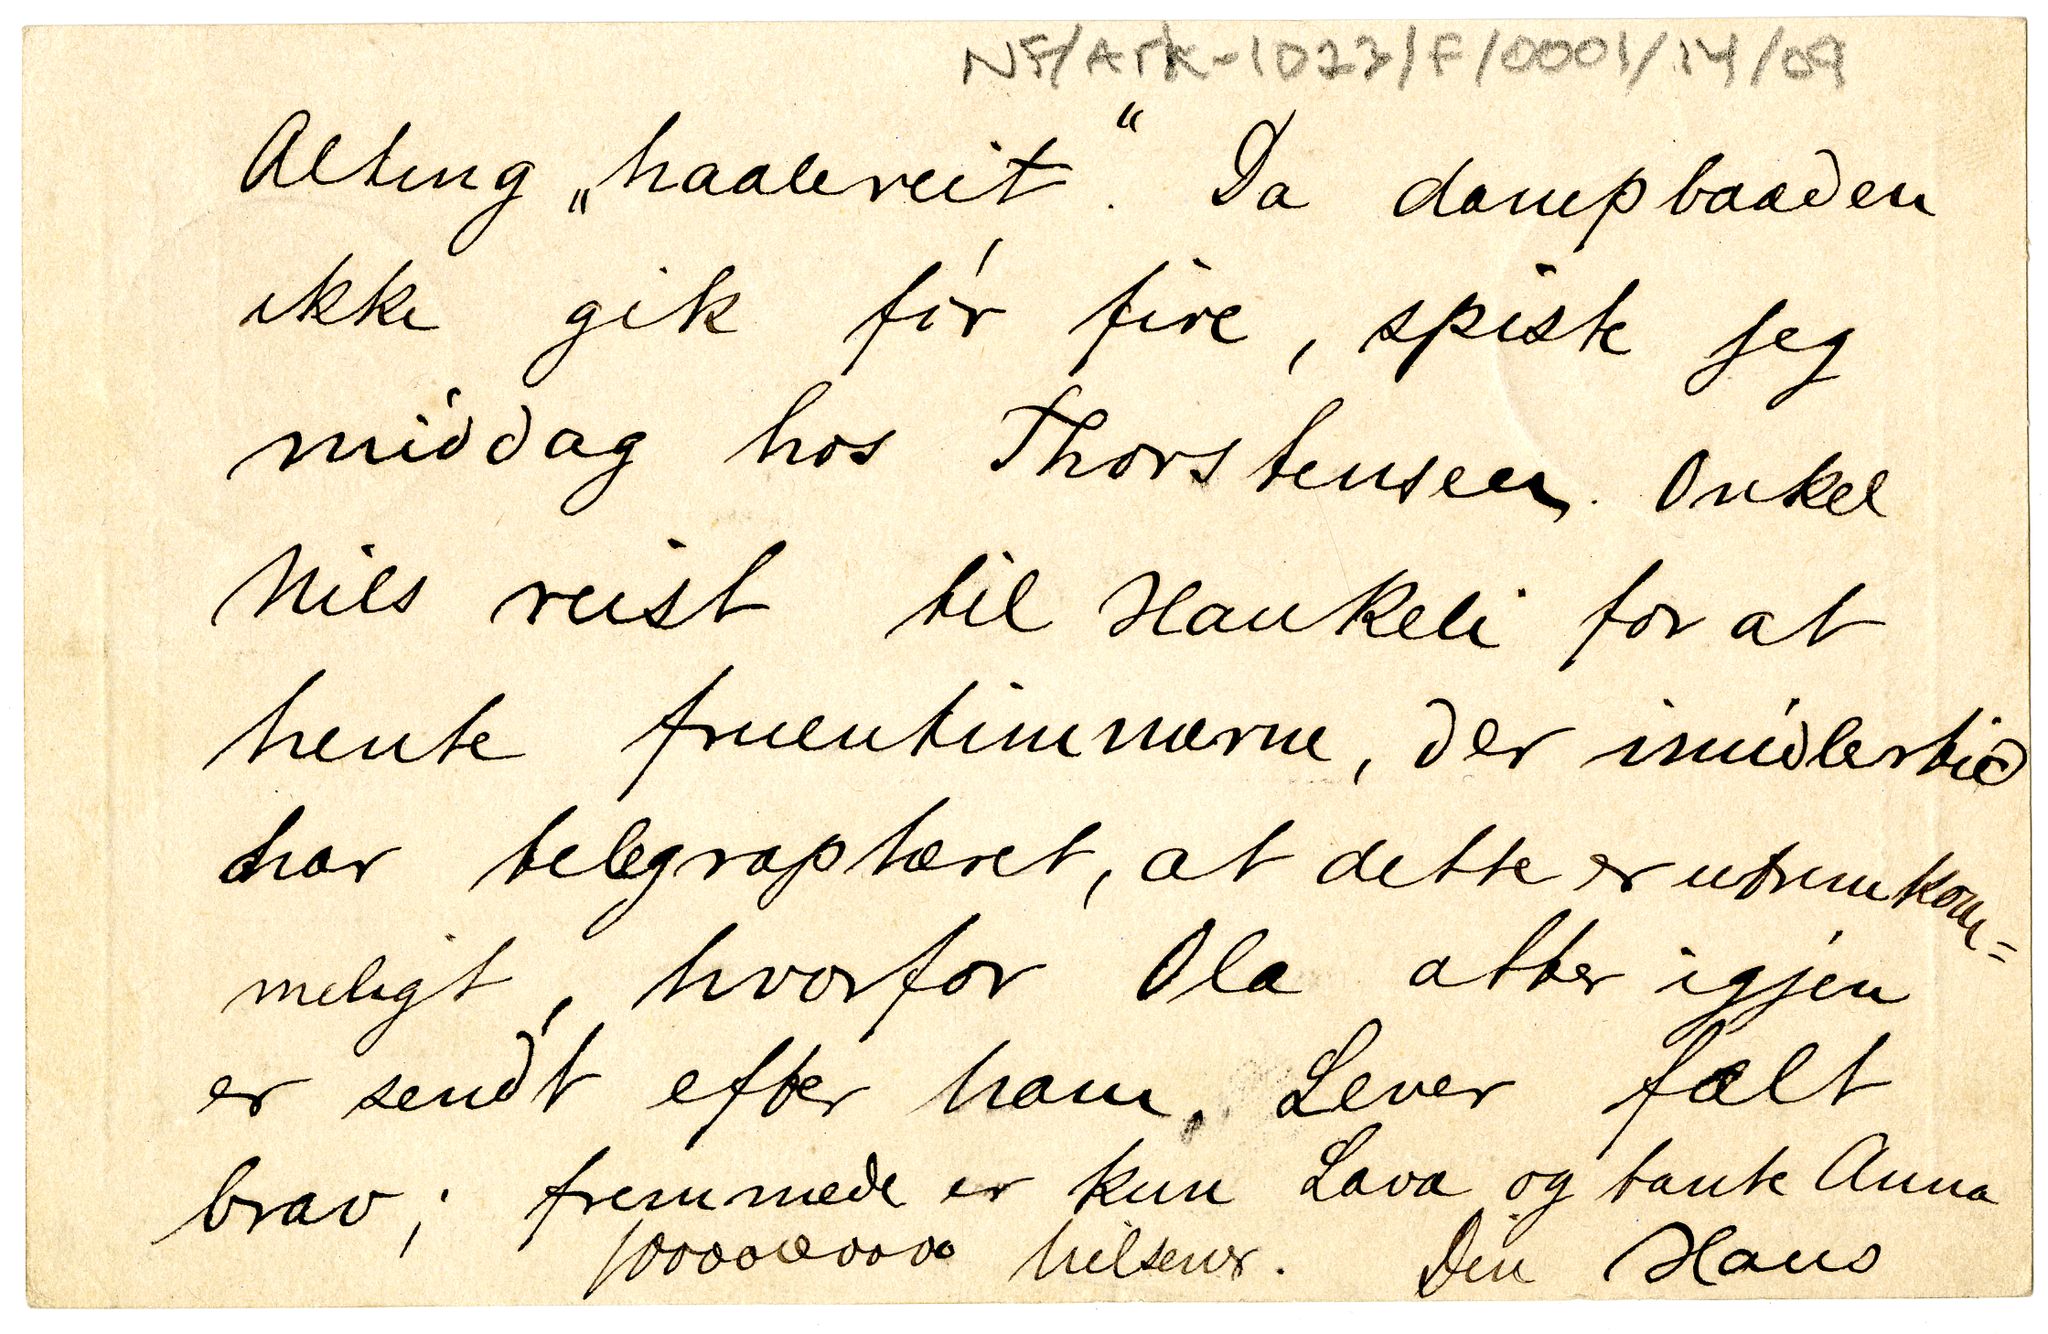 NF/Ark-1023/F/0001/14/09
Alting „haalereit“. Da dampbaaden
ikke gik før fire, spiste jeg
middag hos Thorstensen. Onkel
Nils reist til Haukeli for at
hente fruentimmerne, der imidlertid
har telegrapheret, at dette er
meligt, hvorfor Ola atter igjen
er sendt efter ham. Lever fælt
brav; fremmede er kun Lava og tante Anna
hilsener. Din Hans